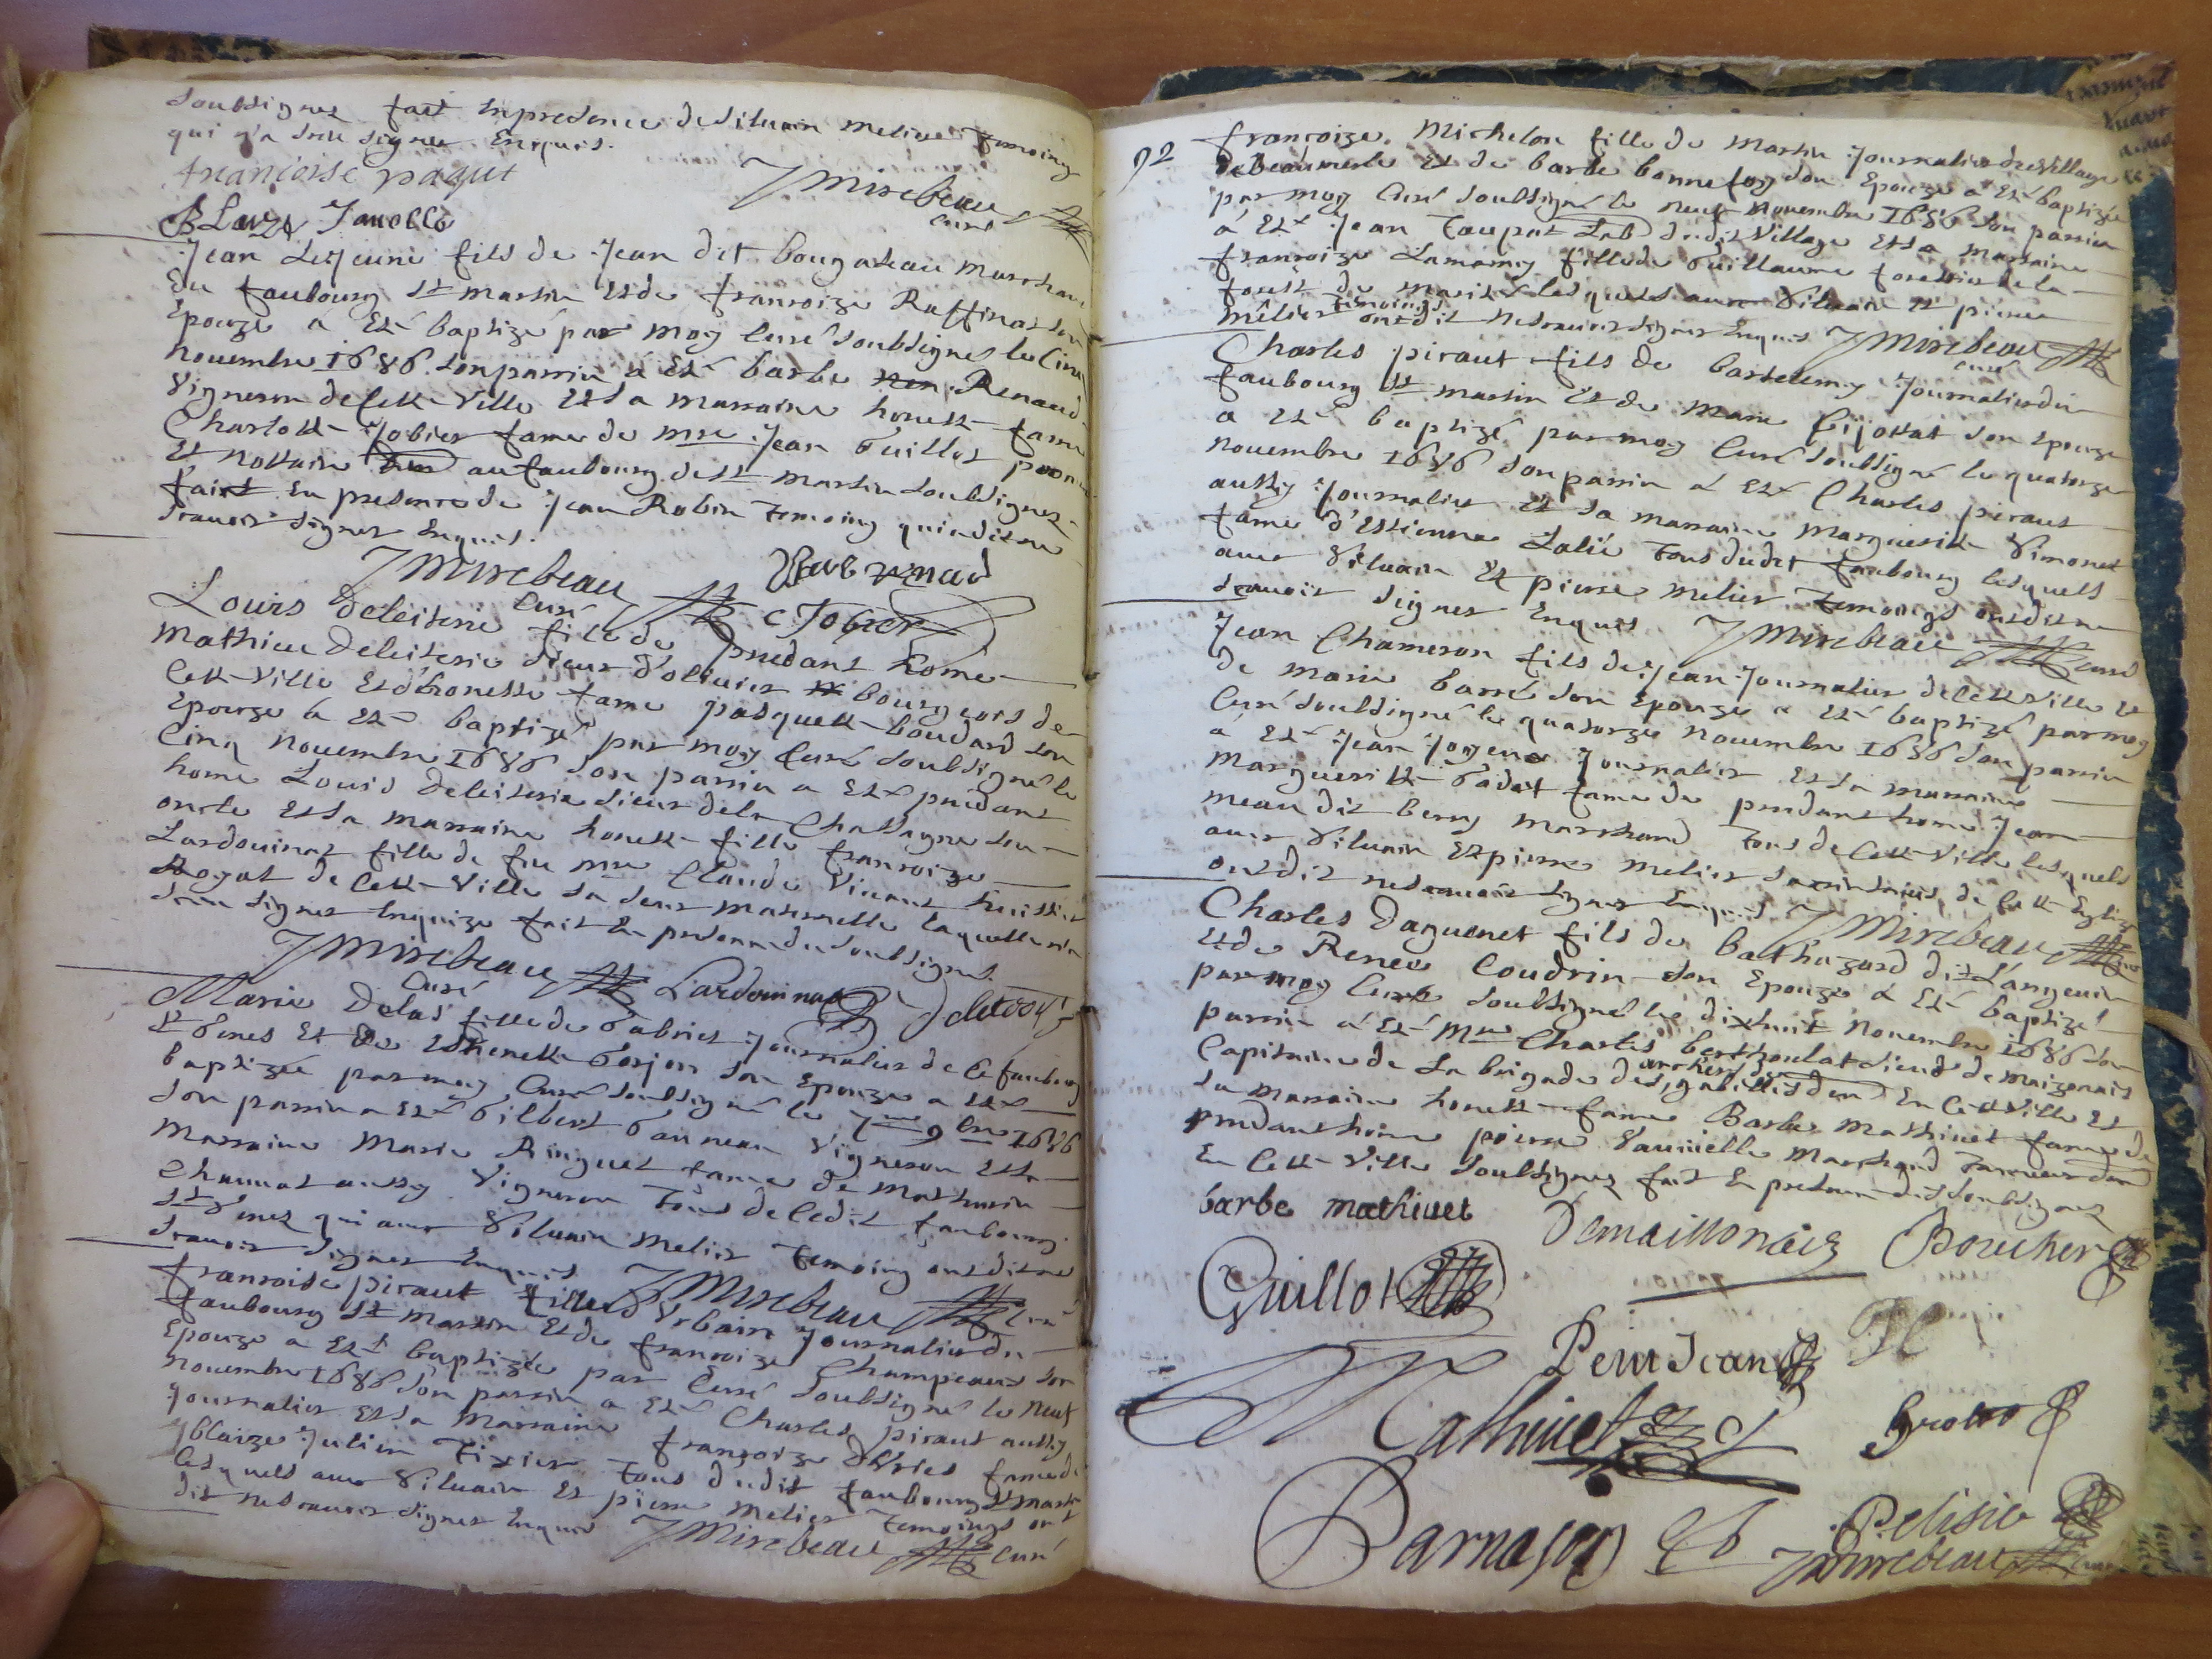 soubsignez fait en presence de siluain melier temoing
qui n'a sceu signer enquis.
francoise paquet
J Mirebeau curé
Jean Lejeune fils de Jean dit bougateau marchan
du faubourg st martin et de francoize Raffinat son
Epouze a esté baptizé par moy Curé soubsigné le Cinq
nouembre 1686. son parrin a esté barbe Renaud
vigneron de Cette ville et sa marraine honeste fame
Charlotte Jobier fame de mre Jean Guillot
et nottaire au faubourg de st martin soubsignez
faict en presence de Jean Robin temoing qui a dit ne
scauoir signer enquis.
J Mirebeau Curé
C Jobier
Louis deleiterie fils de prudant home
mathieu deleiterie sieur d'oliuier bourgeois de
Cette ville et d'honeste fame pasquette boudard son
Epouze a esté baptizé par moy Curé soubsigné le
Cinq nouembre 1686 son parrin a esté prudant
home Louis deleiterie sieur dela Chassagne son
oncle et sa marraine honeste fille francoize
Lardouinat fille de feu mre Claude viuant huissier
de Cette ville sa seur maternelle laquelle a
sceu signer enquize fait en presence du soubsigné
J Mirebeau Curé Lardouinat
Marie Delas fille de Gabriel Journalier de Ce faubourg
st Genes et de Estienette Gorjon son Epouze a esté
baptizée par moy Curé soubsigné le 7me 9bre 1686
son parrin a esté Gilbert Ganneau vigneron et sa
marraine marie Ringuet fame de mathurin
Chaumat aussy vigneron tous de Cedit faubourg
st Genes qui auec siluain melier temoing ont dit ne
scauoir signer enquis J Mirebeau Curé
francoise piraut fille d'Vrbain Journalier du
faubourg st martin et de francoize Champeaux son
Epouze a esté baptizée par Curé soubsigné le neuf
nouembre 1686 son parrin a esté Charles piraut aussy
journalier et sa marraine francoize fame de
blaize Julien tixier tous dudit faubourg st martin
lesquels auec siluain et pierre melier temoings ont
dit ne scauoir signer enquis J Mirebeau Curé
92
francoize Michelon fille de Martin Journalier du village
de beaumerle et de barbe bonnefoy son Epouze a esté baptizée
par moy Curé soubsigné le neuf nouembre 1686 son parrin
a esté Jean toupat dudit village et sa marraine
francoize Lamamy fille de Guillaume forestier de la
forest de lesquels auec siluain et pierre
mélier temoings ont dit ne scauoir signer enquis J Mirebeau curé
Charles piraut fils de bartelemy Journalier du
faubourg st martin et de marie son Epouze
a esté baptizé par moy Curé soubsigné le quatorze
nouembre 1686 son parrin a esté Charles piraut
aussy Journalier et sa marraine marguerite Simonet
fame d'Estienne Lalie tous dudit faubourg lesquels
auec siluain et pierre melier temoings ont dit ne
scauoir signer enquis J Mirebeau curé
Jean Chameron fils de Jean Journalier de Cette ville et
de marie barré son Epouze a esté baptizé par moy
Curé soubsigné le quatorze nouembre 1686 son parrin
a esté Jean Joyeux Journalier et sa marraine
marguerite Gadat fame de prudant home Jean
meau dit berry marchand tous de Cette ville lesquels
auec siluain et pierre melier de Cette Eglize
ont dit ne scauoir signer enquis J Mirebeau
Charles Daguenet fils de balthazard dit L'angeuin
et de Renee Coudrin son Epouze a esté baptizé
par moy Curé soubsigné le dixhuit nouembre 1686 son
parrin a esté Mre Charles berthoulat sieur de maizonnais
Capitaine de la brigade des archers des gabelles en Cette ville et
sa marraine honeste fame Barbe mathiuet fame de
prudant home pierre marchand
en Cette ville soubsignez fait en presence des soubsignez
barbe mathiuet Demaisonnais Boucher
Guillot
Petit Jean
Mathiuet
Pelisie
J Mirebeau curé